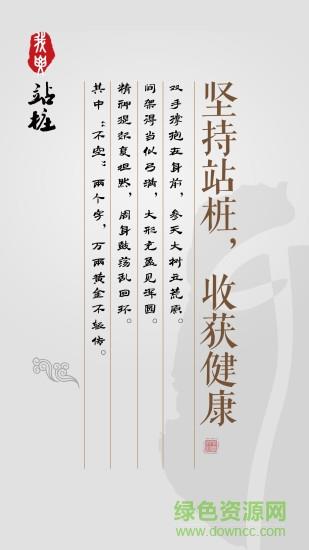 我要
站桩
坚持站桩，收获健康
双手撑抱立身前，参天大树立荒原。
间架得当似弓满，大形充盈见浑圆。
精神提起复坦然，周身鼓荡乱回环。
其中“不空”两个字，万两黄金不轻传。
绿色资源网
www.downcc.com